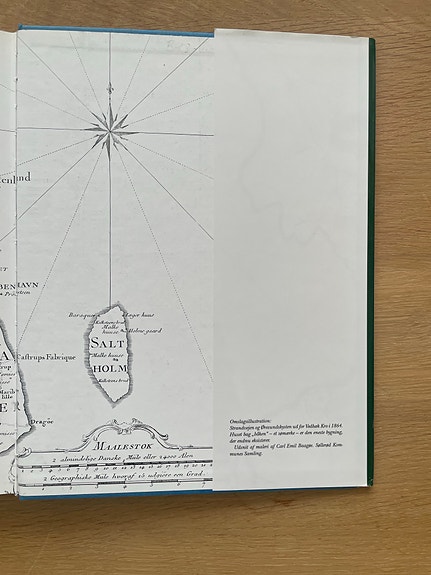 enland
ET
BENHAVN
Castrups Fabrique
Dragöe
ER
Baraque
Læge huus
Kalkstens brud
Malke huuse
Holms gaard
SALT
Malke huuse
HOLM
Kalkstens brud
MAALESTOK
2 almindelige Danske Mile eller 24000 Alen
2 Geographiske Mile hvoraf 15 udgiöre een Grad
Omslagsillustration:
Strandvejen og Øresundskysten ud for Vedbæk Kro i 1864.
Huset bag „leben“ – et sømærke – er den eneste bygning,
der endnu eksisterer.
Udsnit af maleri af Carl Emil Baagøe. Søllerød Kom-
munes Samling.